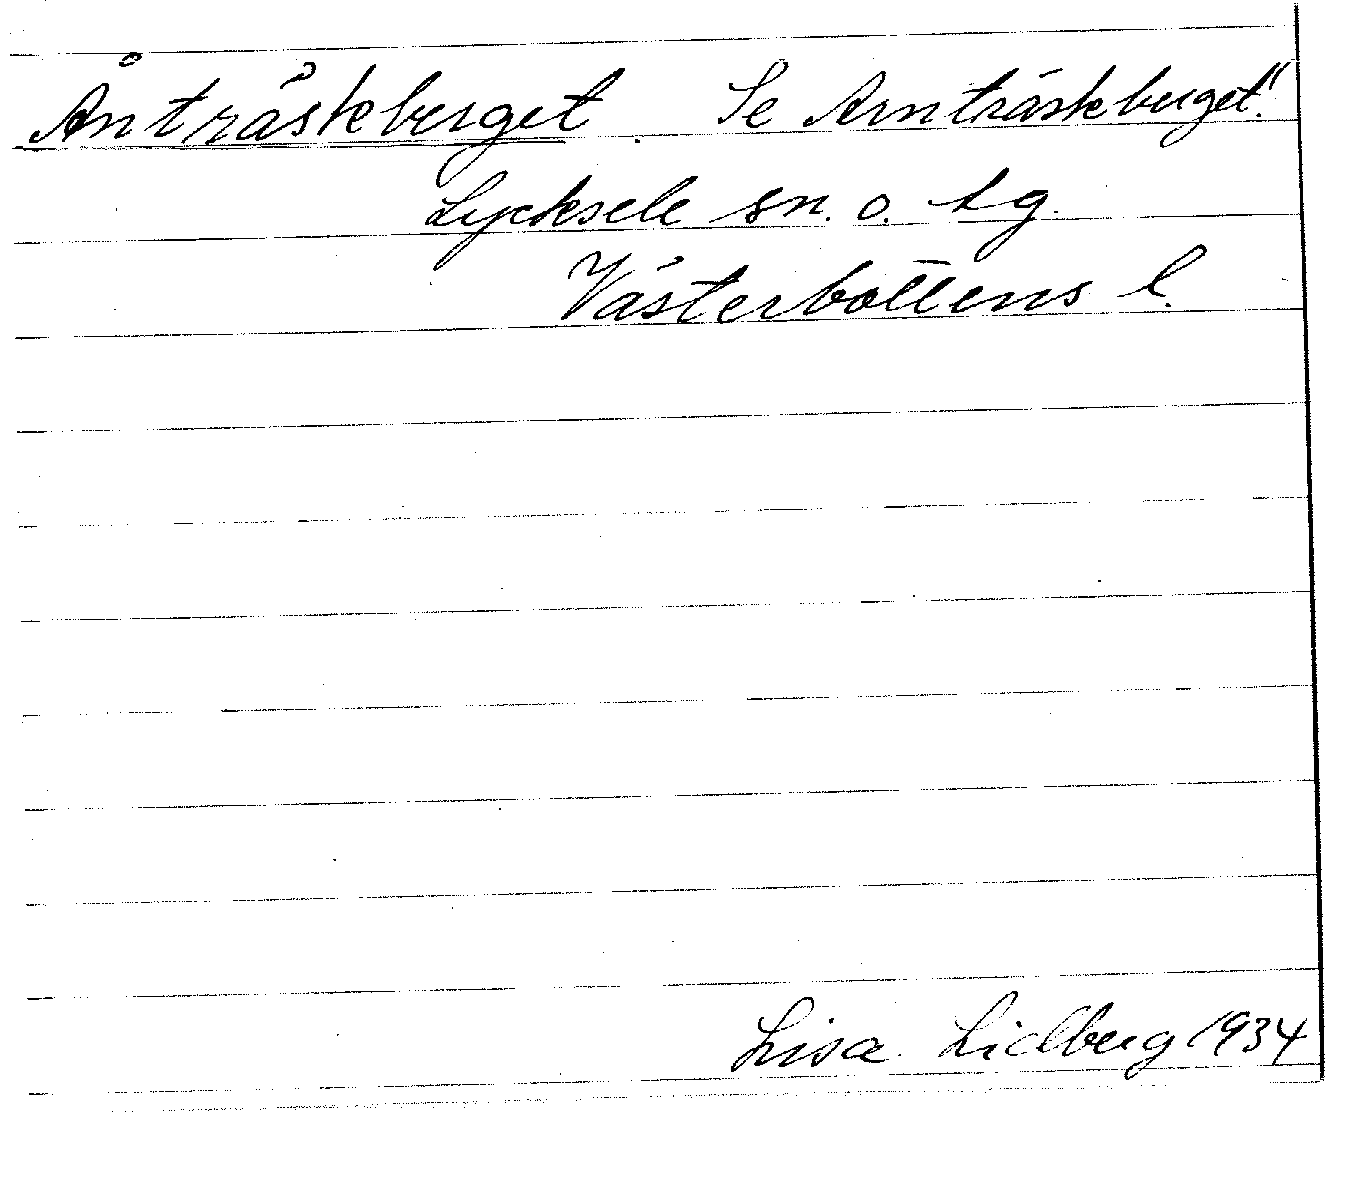 Ånträskberget. Se Arnträskberget!
Lycksele sn. o. tg.
Västerbottens l.
Lisa Lidberg 1934